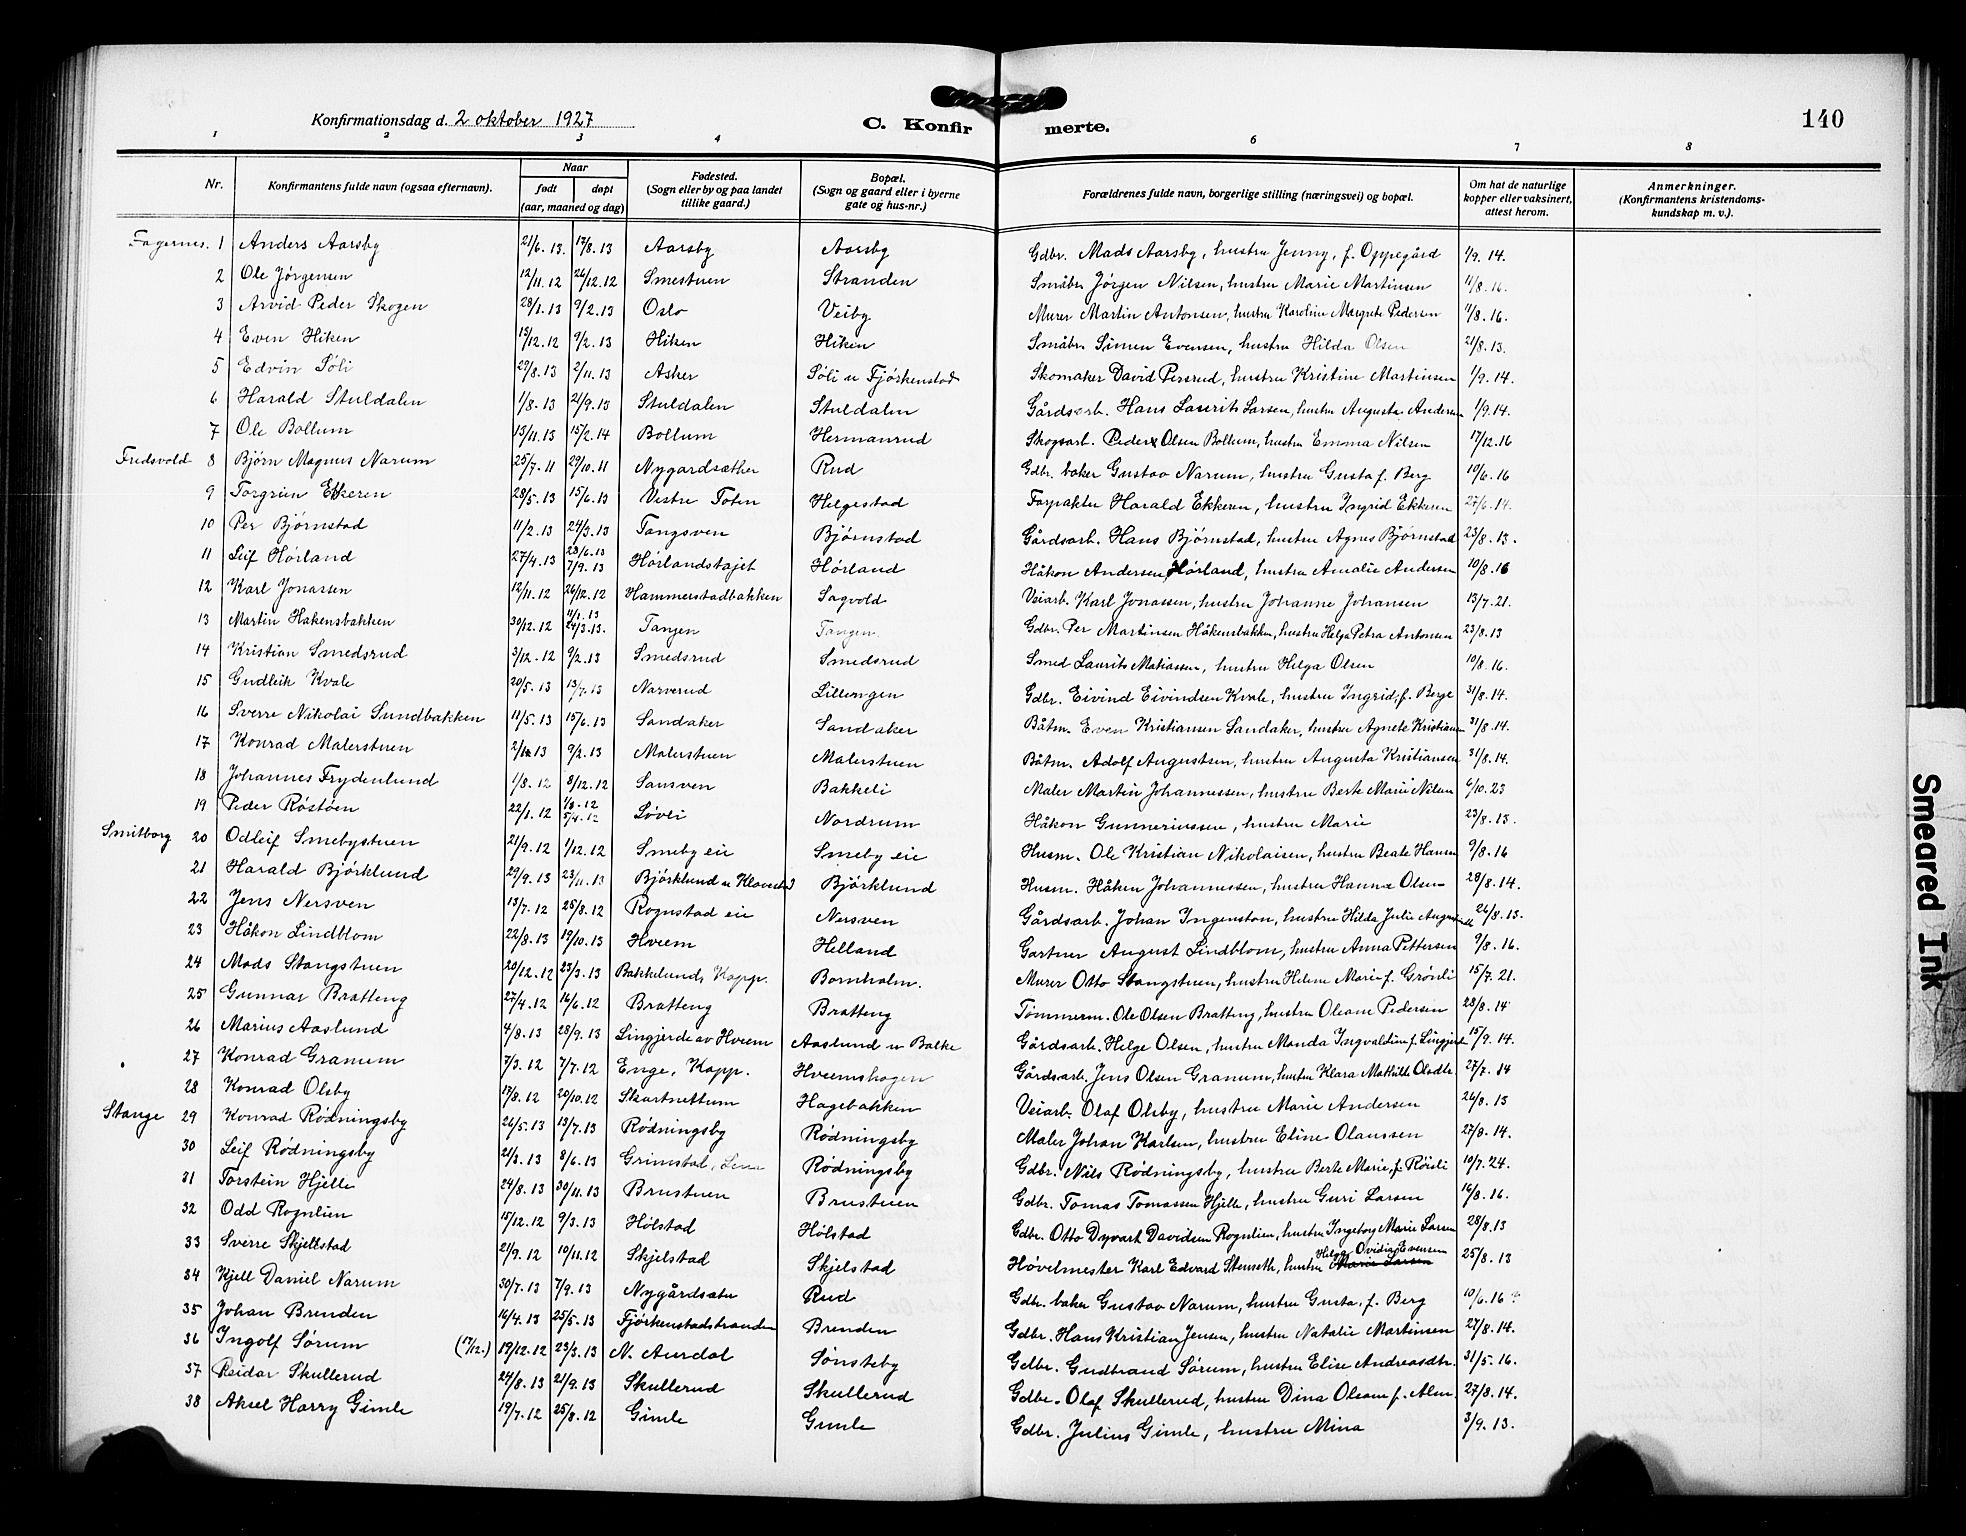 140
Konfirmationsdag d. 2 oktober 1927
C. Konfirmerte.
1 2 3 4 5 6 7 8
Nr. Konfirmantens fulde navn (ogsaa efternavn). Naar født døpt (aar, maaned og dag) Fødested. (Sogn eller by og paa landet tillike gaard.) Bopæl. (Sogn og gaard eller i byerne gate og hus-nr.) Forældrenes fulde navn, borgerlige stilling (næringsvei) og bopæl. Om hat de naturlige kopper eller vaksinert, attest herom. Anmerkninger. (Konfirmantens kristendoms-kundskap m. v.).
Fagernes. 1 Anders Aarsby 21/6. 13. 17/8. 13 Aarsby Aarsby Gdbr. Mads Aarsby, hustru Jenny, f. Oppegård 1/9. 14.
2 Ole Jørgensen 12/11. 12 26/12. 12 Smestuen Stranden Småbr. Jörgen Nilsen, hustru Marie Martinsen 11/8. 16.
3 Arvid Peder Skogen 28/1. 13 9/2. 13 Oslo Veiby Murer Martin Antonsen, hustru Karoline Margrete Pedersen 11/8. 16.
4 Even Hiken 15/12. 12 9/2. 13 Hiken Hiken Småbr. Simen Evensen, hustru Hilda Olsen 21/8. 13.
5 Edvin Søli 29/8. 13 2/11. 13 Asker Söli u Fjörkenstad Skomaker David Persrud, hustru Kristine Martinsen 1/9. 14.
6 Harald Stuldalen 1/8. 13 21/9. 13 Stuldalen Stuldalen Gårdsarb. Hans Laurits Larsen, hustru Augusta Andersen 1/9. 14.
7 Ole Bollum 13/11. 13 15/2. 14 Bollum Hermanrud Skogsarb. Peder Olsen Bollum, hustru Emma Nilsen 17/12. 16
Fredsvold 8 Bjørn Magnus Narum 25/7. 11 29/10. 11 Nygardsæther Rud Gdbr. baker Gustav Narum, hustru Gusta f. Berg 10/6. 16
9 Torgrim Ekkeren 28/5. 13 15/6. 13 Vestre Toten Helgestad Forpakter Harald Ekkeren, hustru Ingrid Ekkeren 27/6. 14.
10 Per Bjørnstad 11/2. 13 24/3. 13 Tangsven Bjørnstad Gårdsarb. Hans Bjørnstad, hustru Agnes Bjørnstad 23/8. 13.
11 Leif Hörland 27/4. 13 23/6. 13 7/9. 13 Hörlandstajet Hörland Håkon Andersen Hörland, hustru Amalie Andersen 10/8. 16
12 Karl Jonassen 12/11. 12 26/12. 12 Hammerstadbakken Sagvold Veiarb. Karl Jonassen, hustru Johanne Johansen 13/7. 21.
13 Martin Hakensbakken 30/12. 12 4/1. 13 24/3. 13. Tangen Tangen. Gdbr. Per Martinsen Håkensbakken, hustru Helga Petra Antonsen 23/8. 13
14 Kristian Smedsrud 3/12. 12 9/2. 13 Smedsrud Smedsrud Smed Laurits Matiassen, hustru Helga Olsen 10/8. 16.
15 Gudleik Kvale 20/5. 13 13/7. 13 Narverud Lillengen Gdbr. Eivind Eivindsen Kvale, hustru Ingrid, f. Berge 31/8. 14.
16 Sverre Nikolai Sundbakken 11/5. 13 15/6. 13 Sandaker Sandaker Båtm. Even Kristiansen Sandaker, hustru Agnete Kristiansen 31/8. 14.
17 Konrad Malerstuen 2/1 13 9/2. 13 Malerstuen Malerstuen Båtm. Adolf Augustsen, hustru Augusta Kristiansen 31/8. 14.
18 Johannes Frydenlund 1/8. 12 8/12. 12 Sansven Bakkeli Maler Martin Johannessen, hustru Berte Marie Nilsen 6/10. 23
19 Peder Röstöen 22/1. 12 1/3. 12 5/4. 12 Lövli Nordrum Håkon Gunneriussen, hustru Marie 23/8. 13.
Smitborg 20 Odleif Smebystuen 21/9. 12 1/12. 12 Smeby eie Smeby eie Husm. Ole Kristian Nikolaisen, hustru Beate Hansen 9/8. 16
21 Harald Björklund 29/9. 13 23/11. 13 Björklund u Klovstad Björklund Husm. Håken Johannessen, hustru Hanna Olsen 28/8. 14.
22 Jens Nersven 13/7. 12 25/8. 12 Rognstad eie Nersven Gårdsarb. Johan Ingenston, hustru Hilda Julie 26/8. 13.
23 Håkon Lindblom 22/8. 13 19/10. 13 Hveem Helland Gartner August Lindblom, hustru Anna Pettersen 9/8. 16.
24 Mads Stangstuen 20/12. 12 23/3. 13 Bakkelund, Kapp. Bornholm. Murer Otto Stangstuen, hustru Helene Marie f. Grönli 15/7. 21.
25 Gunnar Bratteng 27/4. 12 16/6. 12 Bratteng Bratteng Tømmerm. Ole Olsen Bratteng, hustru Oleane Pedersen 28/8. 14
26 Marius Aaslund 4/8. 13 28/9. 13 Lingjerde av Hveem Aaslund u Balke Gårdsarb. Helge Olsen, hustru Manda Ingvaldine f. Lingjerde 15/9. 14.
27 Konrad Granum 7/3. 12 7/7. 12 Enge, Kapp. Hveemshagen Gårdsarb. Jens Olsen Granum, hustru Klara Matilde Olsdtr. 27/7. 14
28 Konrad Olsby 17/8. 12 20/10. 12 Skartnettum Hagebakken Veiarb. Olaf Olsby, hustru Marie Andersen 26/8. 13
Stange 29 Konrad Rödningsby 26/5. 13 13/7. 13 Rödningsby Rödningsby Maler Johan Karlsen, hustru Eline Olaussen 27/8. 14.
30 Leif Rödningsby 21/3. 13 8/6. 13 Grimstad, Lena Rödningsby Gdbr. Nils Rödningsby, hustru Berte Marie, f. Röisli 10/7. 24.
31 Torstein Hjelle 24/8. 13 30/11. 13 Brustuen Brustuen Gdbr. Tomas Tomassen Hjelle, hustru Guri Larsen 16/8. 16.
32 Odd Rognlien 15/12. 12 9/3. 13 Hölstad Hölstad Gdbr. Otto Dyvart Davidsen Rognlien, hustru Ingeborg Marie Larsen 28/8. 13
33 Sverre Skjellstad 21/9. 12 10/11. 12 Skjelstad Skjelstad Hövelmester Karl Edvard Stenseth, hustru Helga Ovidia Evensen Marie Larsen 25/8. 13
34 Kjell Daniel Narum 30/7. 13 7/9. 13 Nygårdsæter Rud Gdbr. baker Gustav Narum, hustru Gusta, f. Berg 10/6. 16
35 Johan Brenden 16/4. 13 25/5. 13 Fjörkenstadstranden Brenden Gdbr. Hans Kristian Jensen, hustru Natalie Martinsen 27/8. 14.
36 Ingolf Sørum (17/12.) 19/12. 12 23/3. 13 N. Aurdal Sønsteby Gdbr. Gudbrand Sörum, hustru Elise Andreasdtr. 31/5. 16.
37 Reidar Skullerud 24/8. 13 21/9. 13 Skullerud Skullerud Gdbr. Olaf Skullerud, hustru Dina Olsen f. Alm 27/8. 14.
38 Aksel Harry Gimle 19/7. 12 25/8. 12 Gimle Gimle Gdbr. Julius Gimle, hustru Mina 3/9. 13.
Smeared Ink